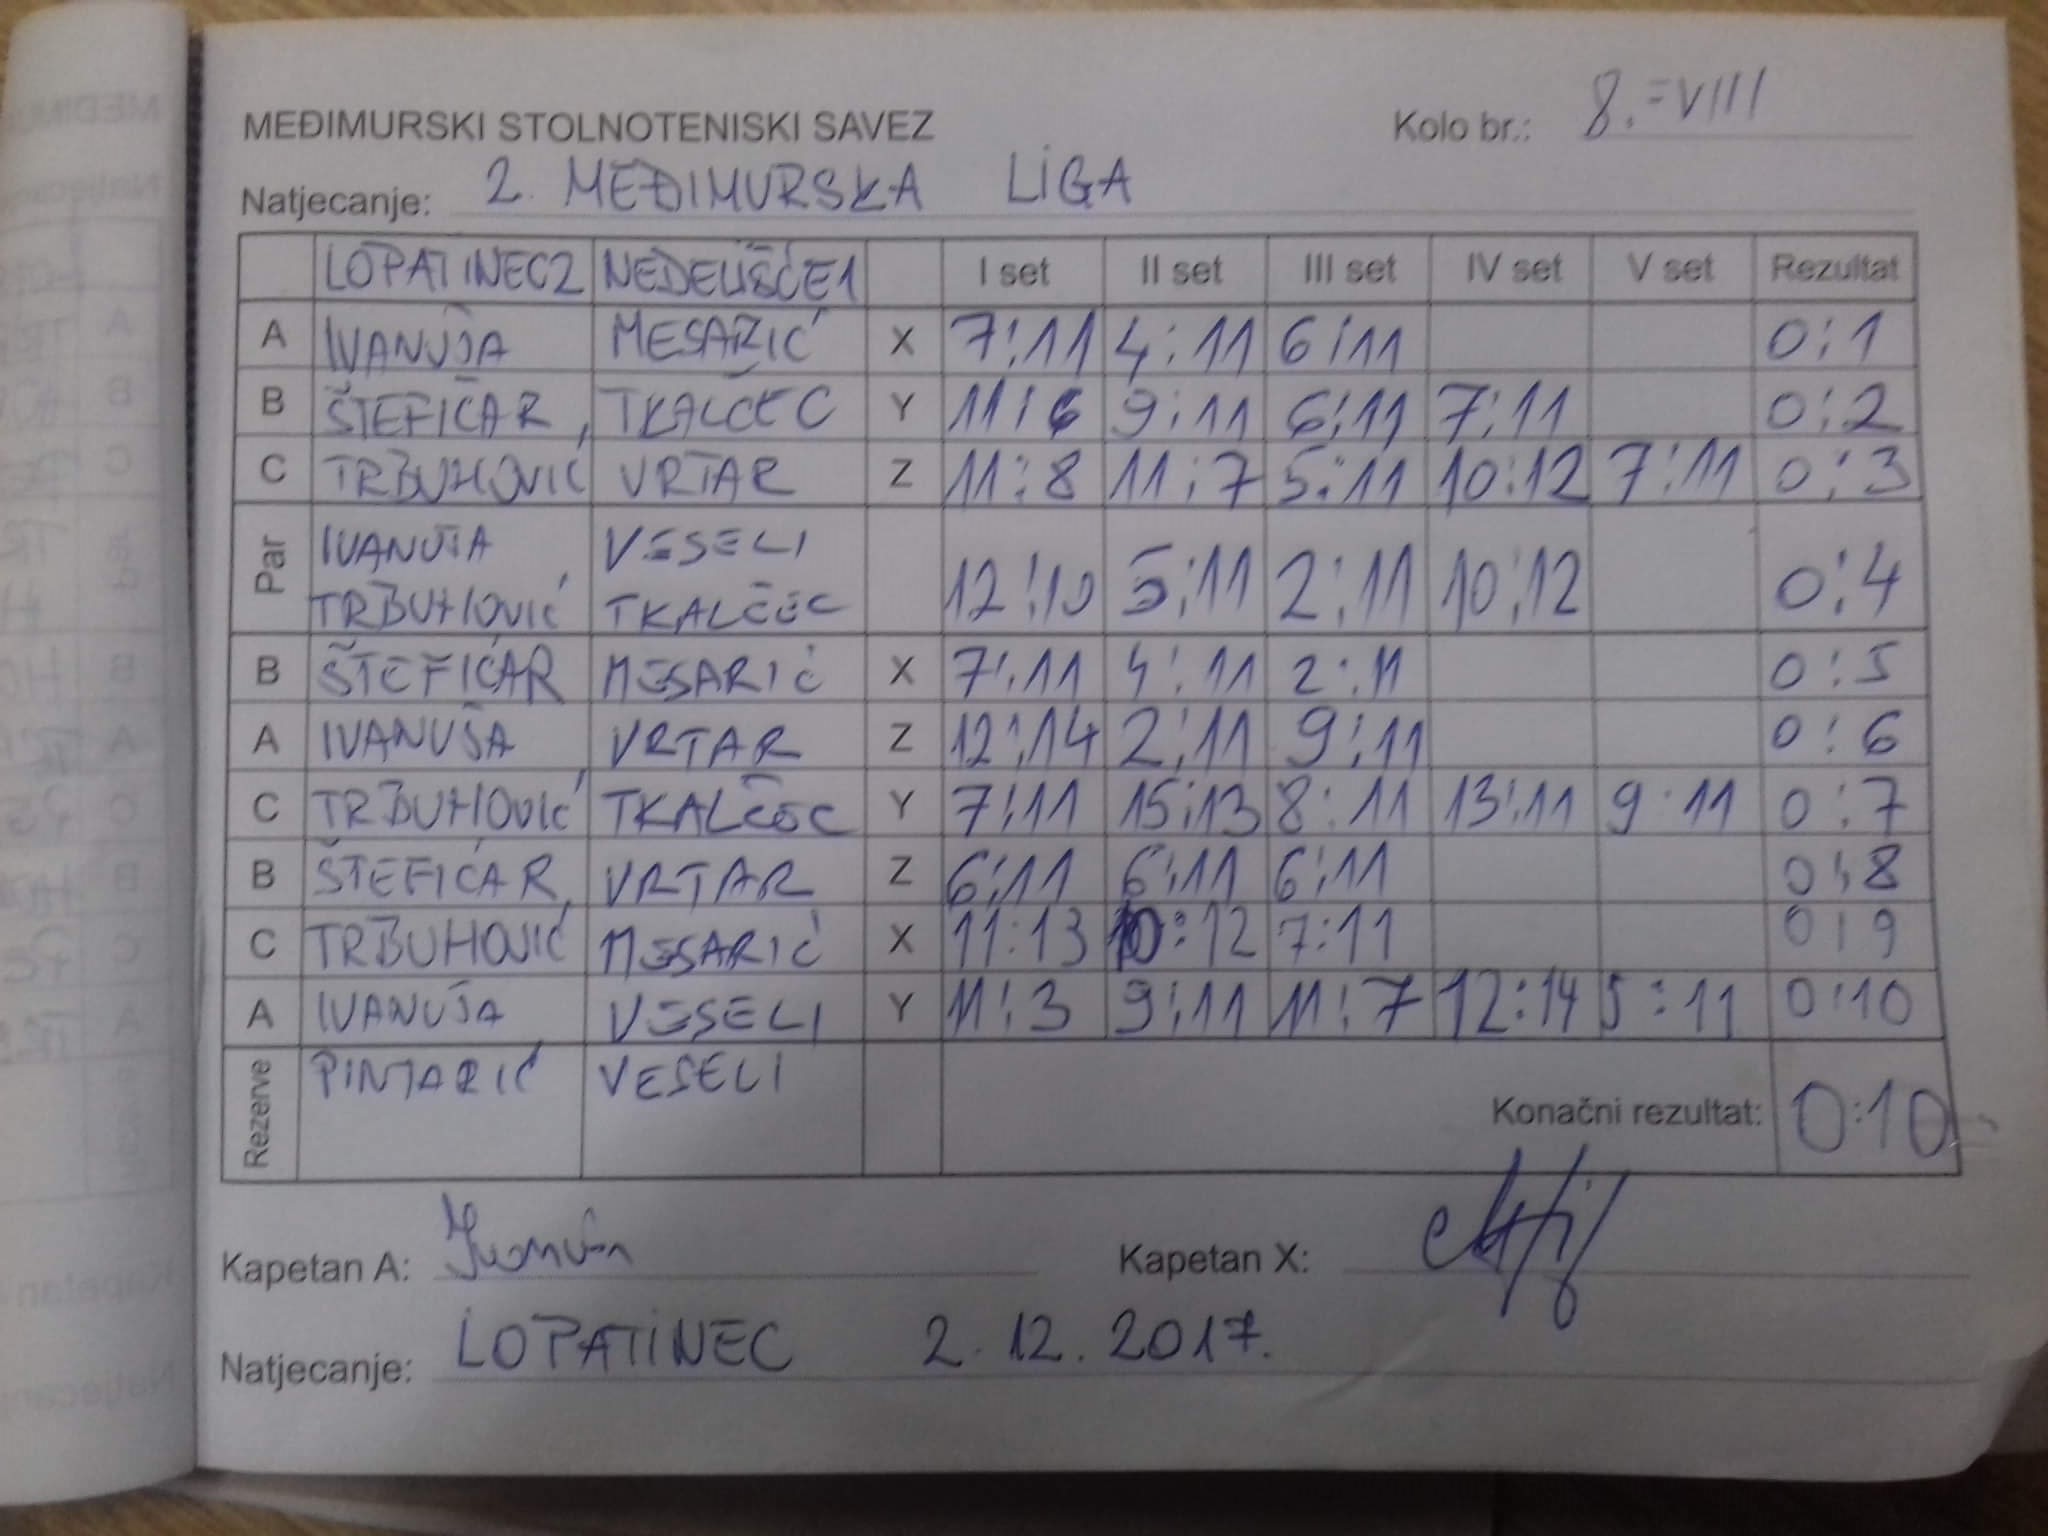 MEĐIMURSKI STOLNOTENISKI SAVEZ Kolo br.: 8. = VIII
Natjecanje: 2. MEĐIMURSKA LIGA
LOPATINEC2 NEDELIŠČE1 I set II set III set IV set V set Rezultat
A IVANUŠA MESARIĆ X 7:11 4:11 6:11 0:1
B ŠTEFIČAR, TKALČEC Y 11:6 9:11 6:11 7:11 0:2
C TRBUHOVIĆ VRTAR Z 11:8 11:7 5:11 10:12 7:11 0:3
Par IVANUŠA VESELI 12:10 5:11 2:11 10:12 0:4
TRBUHOVIĆ TKALČEC
B ŠTEFIČAR MESARIĆ X 7:11 4:11 2:11 0:5
A IVANUŠA VRTAR Z 12:14 2:11 9:11 0:6
C TRBUHOVIĆ TKALČEC Y 7:11 15:13 8:11 13:11 9:11 0:7
B ŠTEFIČAR, VRTAR Z 6:11 6:11 6:11 0:8
C TRBUHOVIĆ MESARIĆ X 11:13 10:12 7:11 0:9
A IVANUŠA VESELI Y 11:3 9:11 11:7 12:14 5:11 0:10
Rezerve PINTARIĆ VESELI
Konačni rezultat: 0:10
Kapetan A: Ivanuša Kapetan X:
Natjecanje: LOPATINEC 2.12.2017.